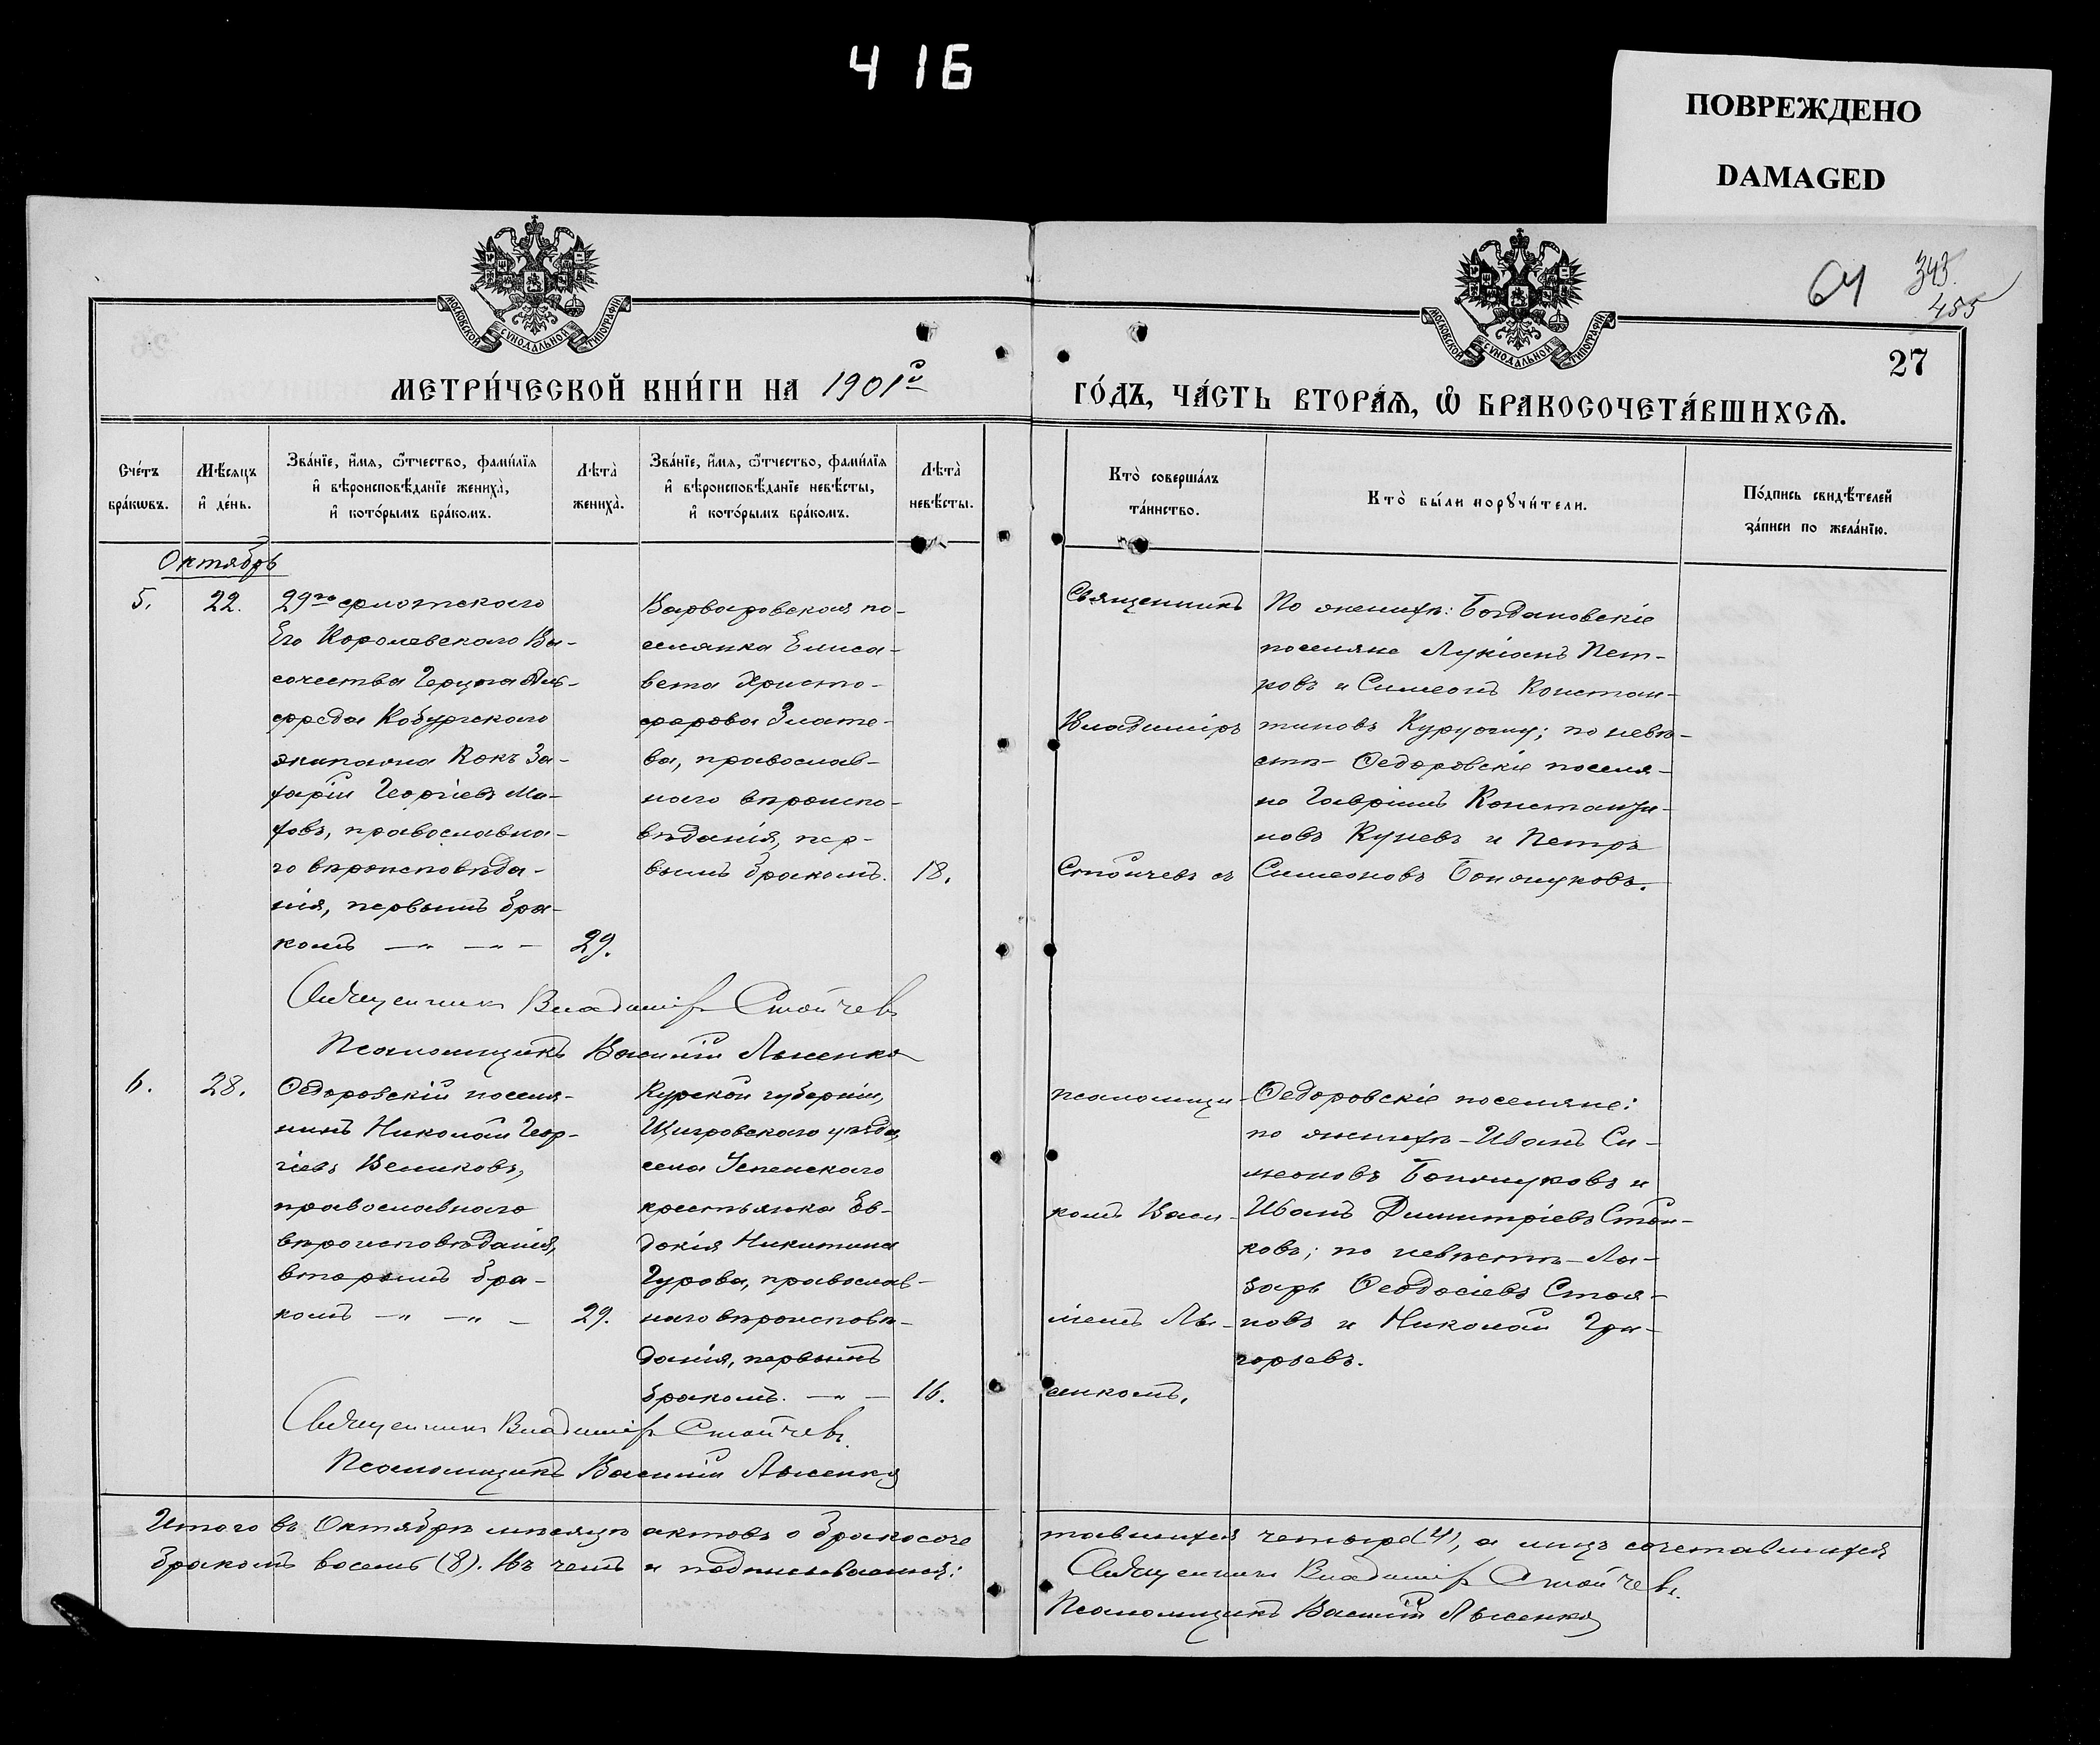 416
ПОВРЕЖДЕНО
DAMAGED
МОСКОВСКОЙ СѴНОДАЛЬНОЙ ТИПОГРАФІИ
МОСКОВСКОЙ СѴНОДАЛЬНОЙ ТИПОГРАФІИ
64
343.
455
27
МЕТРИ́ЧЕСКОЙ КНИ́ГИ НА 1901й
ГО́ДЪ, ЧА́СТЬ ВТОРА́Ѧ, Ѽ БРАКОСОЧЕТА́ВШИХСѦ.
Сче́тъ бра́кѡвъ.
Мѣ́сяцъ и҆ де́нь.
Зва́нїе, и҆́мѧ, ѻ҆́тчество, фами́лїѧ и҆ вѣроисповѣ́данїе жениха̀, и҆ кото́рымъ бра́комъ.
Лѣта̀ жениха̀.
Зва́нїе, и҆́мѧ, ѻ҆́тчество, фами́лїѧ и҆ вѣроисповѣ́данїе невѣ́сты, и҆ кото́рымъ бра́комъ.
Лѣта̀ невѣ́сты.
Кто̀ соверша́лъ та́инство.
Кто̀ бы́ли порꙋчи́тели.
По́дпись свидѣ́телей за́писи по жела́нїю.
Октябрь
5.
22.
29го флотскаго
Его Королевскаго Вы-
сочества Герцога Аль-
фреда Кобургскаго
экипажа Кокъ За-
харій Георгіевъ Ма-
ховъ, православна-
го вѣроисповѣда-
нія, первымъ бра-
комъ — „ — „ —
29.
Варваровская по-
селянка Елиса-
вета Христо-
форова Злате-
ва, православ-
наго вѣроиспо-
вѣданія, пер-
вымъ бракомъ.
18.
Священникъ
Владиміръ
Стойчевъ съ
По женихѣ: Богдановскіе
поселяне Лукіанъ Пет-
ковъ и Симеонъ Констан-
тиновъ Куруогнy; по невѣ-
стѣ — Ѳедоровскіе поселя-
не Гавріилъ Константи-
новъ Куневъ и Петръ
Симеоновъ Бонжуковъ.
Священникъ Владиміръ Стойчевъ
Псаломщикъ Василій Лысенко
6.
28.
Ѳедоровскій поселя-
нинъ Николай Геор-
гіевъ Великовъ,
православнаго
вѣроисповѣданія,
вторымъ бра-
комъ — „ — „ —
29.
Курской губерніи,
Щигровскаго уѣзда,
села Успенскаго
крестьянка Ев-
докія Никитина
Гурова, православ-
наго вѣроисповѣ-
данія, первымъ
бракомъ. — „ —
16.
псаломщи-
комъ Васи-
ліемъ Лы-
сенкомъ.
Ѳедоровскіе поселяне:
по женихѣ — Иванъ Си-
меоновъ Бонжуковъ и
Иванъ Димитріевъ Стой-
ковъ; по невѣстѣ — Ла-
зарь Ѳеодосіевъ Стоя-
новъ и Николай Гри-
горьевъ.
Священникъ Владиміръ Стойчевъ.
Псаломщикъ Василій Лысенко
Итого въ Октябрѣ мѣсяцѣ актовъ о бракосоче
тавшихся четыре (4), а лицъ сочетавшихся
бракомъ восемь (8). Въ чемъ и подписываемся:
Священникъ Владиміръ Стойчевъ.
Псаломщикъ Василій Лысенко